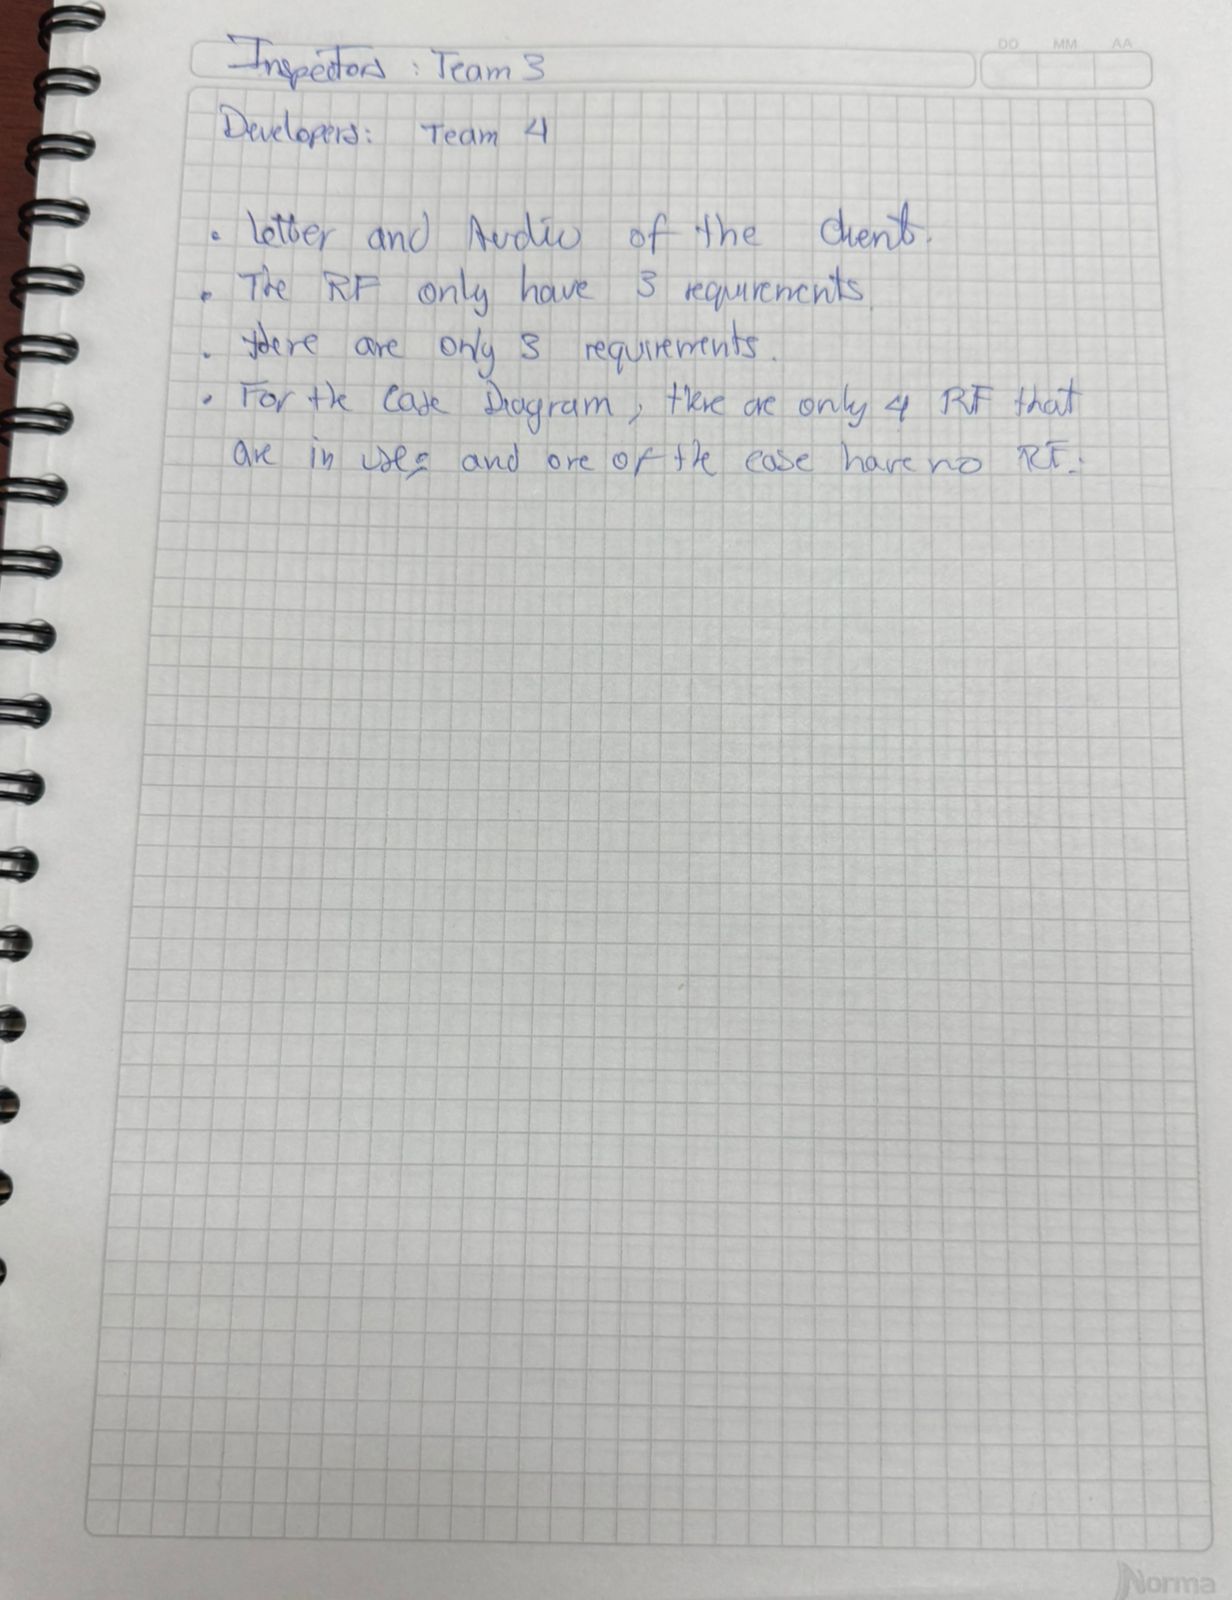 DD MM AA
Inspectors : Team 3
Developers: Team 4
• Letter and Audio of the client.
• The RF only have 3 requirements
• there are only 3 requirements.
• For the Case Diagram, there are only 4 RF that
are in uses and one of the case have no RF.
Norma